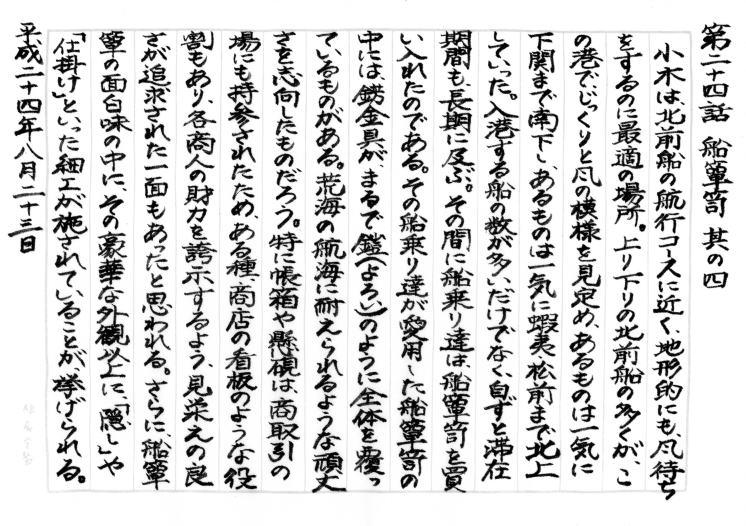 第二十四話 船箪笥 其の四
小木は、北前船の航行コースに近く、地形的にも風待ち
をするのに最適の場所。上り下りの北前船の多くが、こ
の港でじっくりと風の模様を見定め、あるものは一気に
下関まで南下し、あるものは一気に蝦夷・松前まで北上
していった。入港する船の数が多いだけでなく、自ずと滞在
期間も長期に及ぶ。その間に船乗り達は、船箪笥を買
い入れたのである。その船乗り達が愛用した船箪笥の
中には、錺金具が、まるで鎧(よろい)のように全体を覆っ
ているものがある。荒海の航海に耐えられるような頑丈
さを志向したものだろう。特に帳箱や懸硯は、商取引の
場にも持参されたため、ある種、商店の看板のような役
割もあり、各商人の財力を誇示するよう、見栄えの良
さが追求された一面もあったと思われる。さらに、船箪
笥の面白味の中に、その豪華な外観以上に「隠し」や
「仕掛け」といった細工が施されていることが挙げられる。
平成二十四年八月二十三日